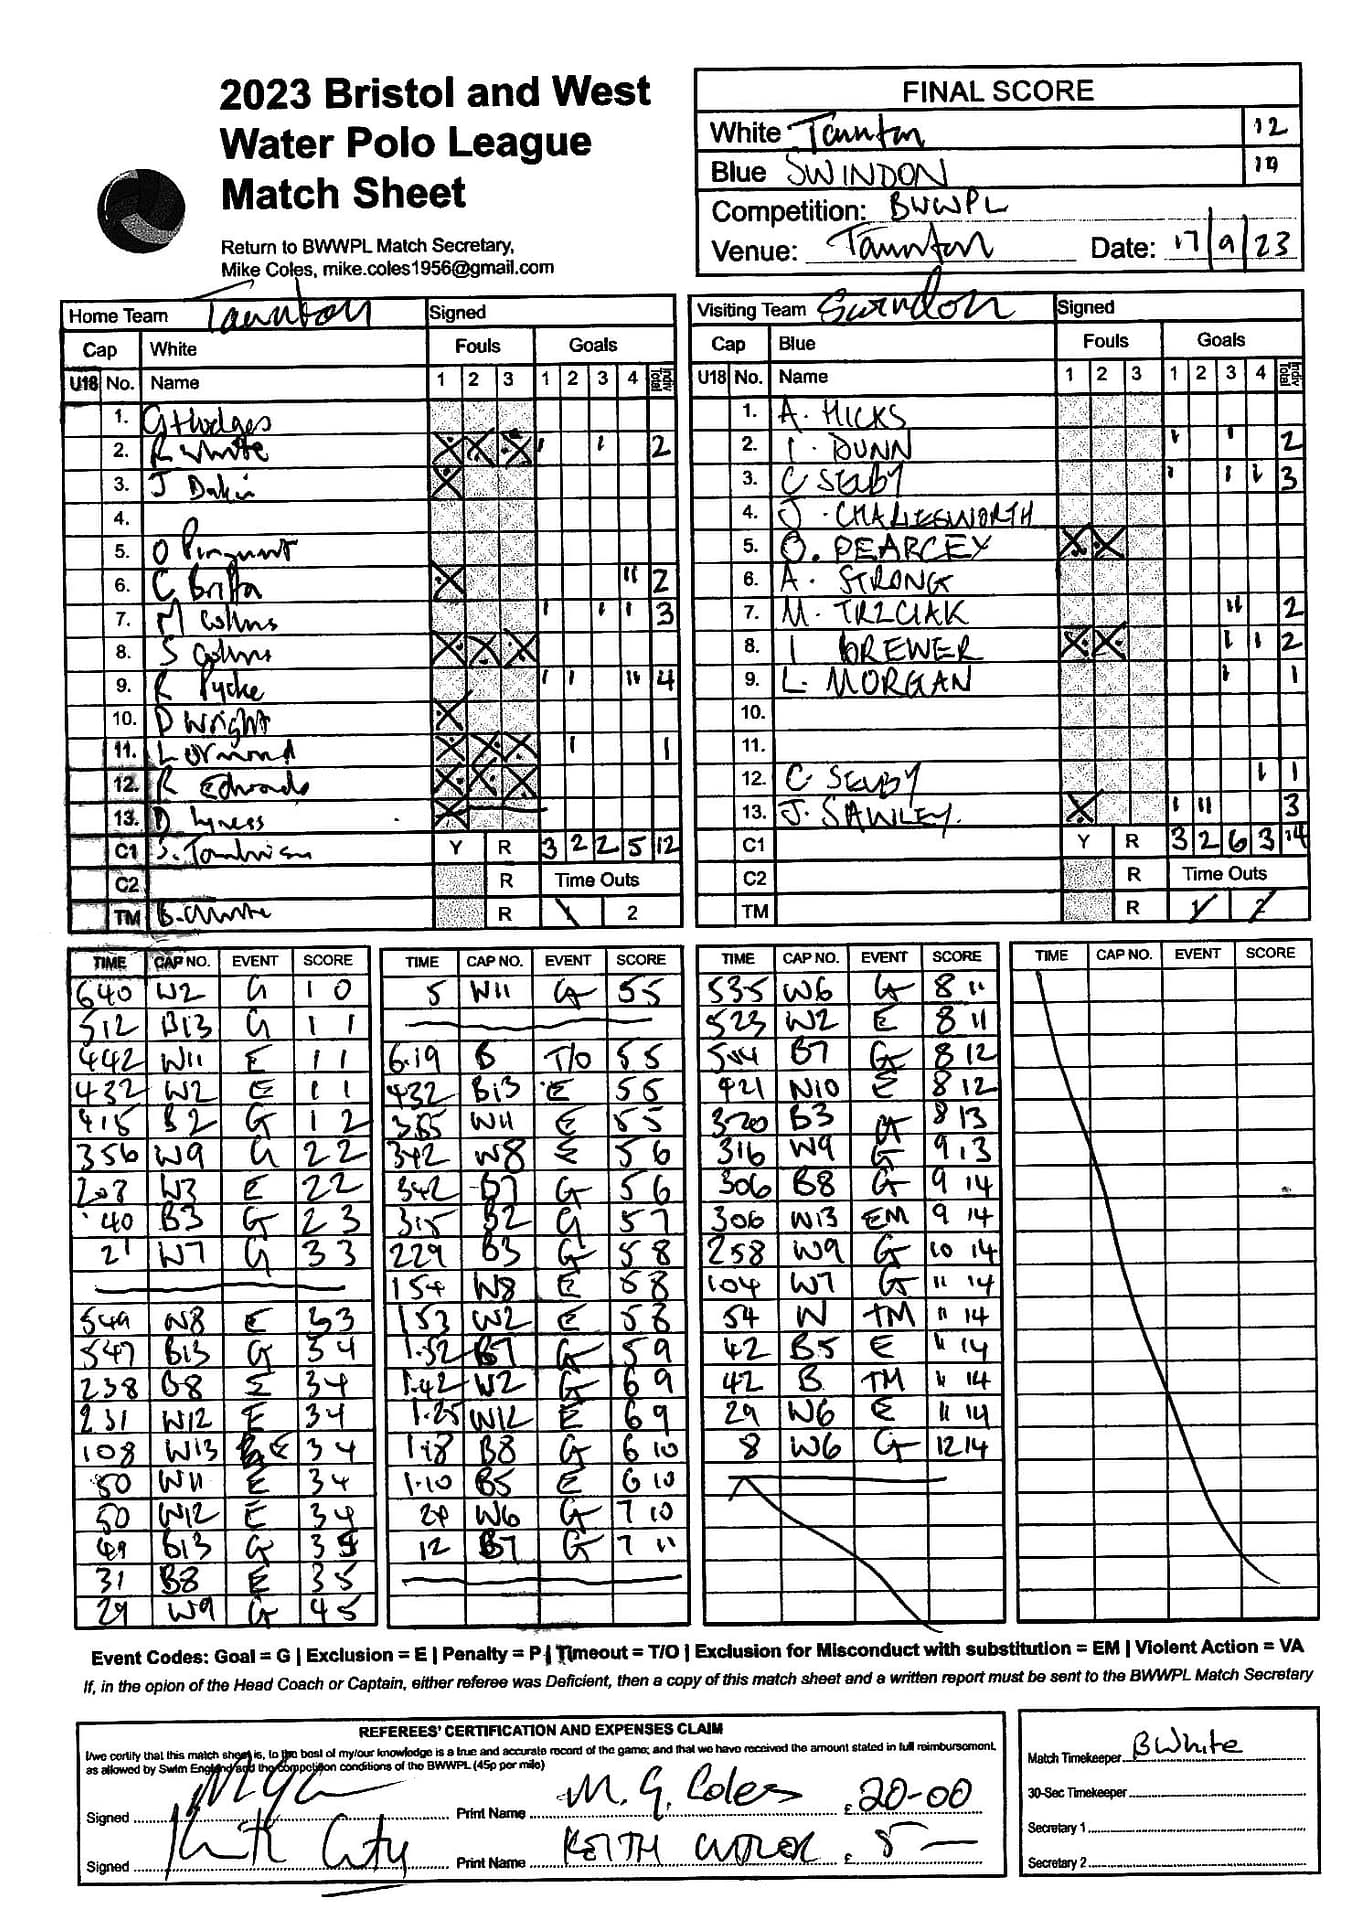 2023 Bristol and West
Water Polo League
Match Sheet
Return to BWWPL Match Secretary,
Mike Coles, mike.coles1956@gmail.com
FINAL SCORE
White Taunton 12
Blue SWINDON 14
Competition: BWWPL
Venue: Taunton Date: 17/9/23
Home Team Taunton Signed
Cap White Fouls Goals
U18 No. Name 1 2 3 1 2 3 4 Indiv Total
1. G Hodges
2. R White X X X 1 1 2
3. J Dakin X
4.
5. O
6. C Britta X 11 2
7. M Collins 1 1 1 3
8. S Collins X X X
9. R Pycke 1 1 11 4
10. D Wright X
11. L Ormond X X X 1 1
12. R Edwards X X X
13. D Lyness X
C1 S. Y R 3 2 2 5 12
C2 R Time Outs
TM B. White R 1 2
Visiting Team Swindon Signed
Cap Blue Fouls Goals
U18 No. Name 1 2 3 1 2 3 4 Indiv Total
1. A. HICKS
2. I. DUNN 1 1 2
3. C SELBY 1 1 1 3
4. J. CHARLESWORTH
5. O. PEARCEY X X
6. A. STRONG
7. M. TRZCIAK 11 2
8. I BREWER X X 1 1 2
9. L. MORGAN 1 1
10.
11.
12. C. SELBY 1 1
13. J. SAWLEY. X 1 11 3
C1 Y R 3 2 6 3 14
C2 R Time Outs
TM R 1 2
TIME CAP NO. EVENT SCORE
640 W2 G 1 0
512 B13 G 1 1
442 W11 E 1 1
432 W2 E 1 1
415 B2 G 1 2
356 W9 G 2 2
207 W3 E 2 2
40 B3 G 2 3
21 W7 G 3 3
549 W8 E 3 3
547 B13 G 3 4
238 B8 E 3 4
231 W12 E 3 4
108 W13 E 3 4
50 W11 E 3 4
50 W12 E 3 4
49 B13 G 3 5
31 B8 E 3 5
29 W9 G 4 5
TIME CAP NO. EVENT SCORE
5 W11 G 5 5
6.19 B T/O 5 5
432 B13 E 5 5
355 W11 E 5 5
342 W8 E 5 6
342 B7 G 5 6
315 B2 G 5 7
229 B3 G 5 8
154 W8 E 5 8
1.53 W2 E 5 8
1.52 B7 G 5 9
1.42 W2 G 6 9
1.25 W12 E 6 9
1.18 B8 G 6 10
1.10 B5 E 6 10
24 W6 G 7 10
12 B7 G 7 11
TIME CAP NO. EVENT SCORE
535 W6 G 8 11
523 W2 E 8 11
504 B7 G 8 12
421 W10 E 8 12
320 B3 G 8 13
316 W9 G 9 13
306 B8 G 9 14
306 W13 EM 9 14
258 W9 G 10 14
104 W7 G 11 14
54 W TM 11 14
42 B5 E 11 14
42 B TM 11 14
29 W6 E 11 14
8 W6 G 12 14
TIME CAP NO. EVENT SCORE
Event Codes: Goal = G | Exclusion = E | Penalty = P | Timeout = T/O | Exclusion for Misconduct with substitution = EM | Violent Action = VA
If, in the opion of the Head Coach or Captain, either referee was Deficient, then a copy of this match sheet and a written report must be sent to the BWWPL Match Secretary
REFEREES' CERTIFICATION AND EXPENSES CLAIM
I/we certify that this match sheet is, to the best of my/our knowledge is a true and accurate record of the game; and that we have received the amount stated in full reimbursement,
as allowed by Swim England and the competition conditions of the BWWPL (45p per mile)
Signed Print Name M. G. Coles £ 20-00
Signed Print Name KEITH £ 5 —
Match Timekeeper B White
30-Sec Timekeeper
Secretary 1
Secretary 2